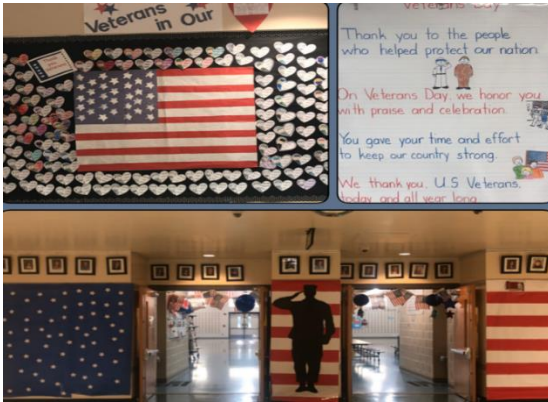 Veterans
in Our
Veterans Day
Thank you to the people
who helped protect our nation.
On Veterans Day, we honor you
with praise and celebration.
You gave your time and effort
to keep our country strong.
We thank you, U.S Veterans,
today and all year long